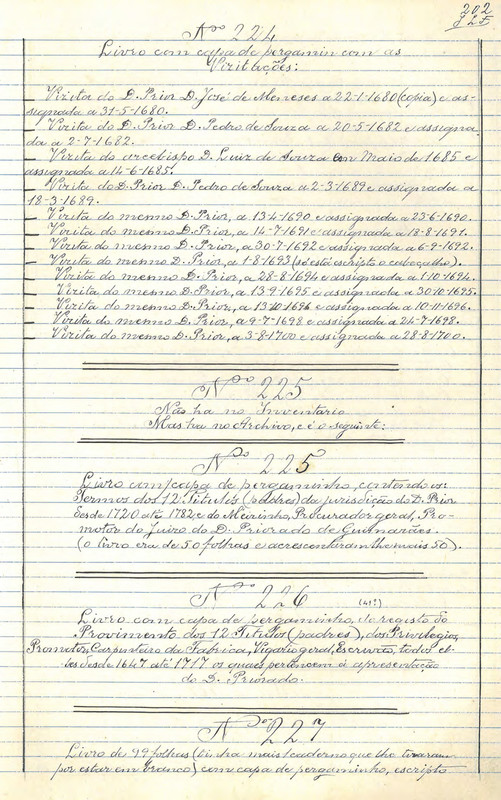 202
Nº 224
Livro com capa de pergamin com as
Visitações:
Visita do D. Prior D. José de Meneses a 22-1-1680 (copia) e as-
signada a 31-5-1680.
Visita do D. Prior D. Pedro de Souza a 20-5-1682 e assigna
da a 2-7-1682.
Visita do arcebispo D. Luiz de Souza em Maio de 1685 e
assignada a 14-6-1685.
Visita do D. Prior D. Pedro de Souza a 2-3-1689 e assignada a
18-3-1689.
Visita do mesmo D. Prior, a 13-4-1690 e assignada a 23-6-1690.
Visita do mesmo D. Prior, a 14-7-1691 e assignada a 18-8-1691.
Visita do mesmo D. Prior, a 30-7-1692 e assignada a 6-9-1692.
Visita do mesmo D. Prior, a 1-8-1693 (só está escripto o cabeçalho).
Visita do mesmo D. Prior, a 28-8-1694 e assignada a 1-10-1694.
Visita do mesmo D. Prior, a 13-9-1695 e assignada a 30-10-1695.
Visita do mesmo D. Prior, a 13-10-1696 e assignada a 10-11-1696.
Visita do mesmo D. Prior, a 9-7-1698 e assignada a 24-7-1698.
Visita do mesmo D. Prior, a 3-8-1700 e assignada a 28-8-1700.
Nº 225
Não ha no Inventario
Mas ha no Archivo, e é o seguinte:
Nº 225
Livro com capa de pergaminho, contendo os
Termos dos 12 Titulos (padres) da jurisdição do D. Prior
desde 1720 até 1782, e do Meirinho, Procurador geral, Pro-
motor do Juizo do D. Priorado de Guimarães.
(o livro era de 50 folhas e acrescentaram-lhe mais 50).
Nº 226 (41º)
Livro com capa de pergaminho, do registo do
Provimento dos 12 Titulos (padres), dos Privilegios,
Promotor, Carpenteiro da Fabrica, Vigario geral, Escrivão, todos el-
les desde 1647 até 1717 os quaes pertencem á apresentação
do D. Priorado.
Nº 227
Livro de 99 folhas (tinha mais 1 caderno que lhe tiraram
por estar em branco) com capa de pergaminho, escripto